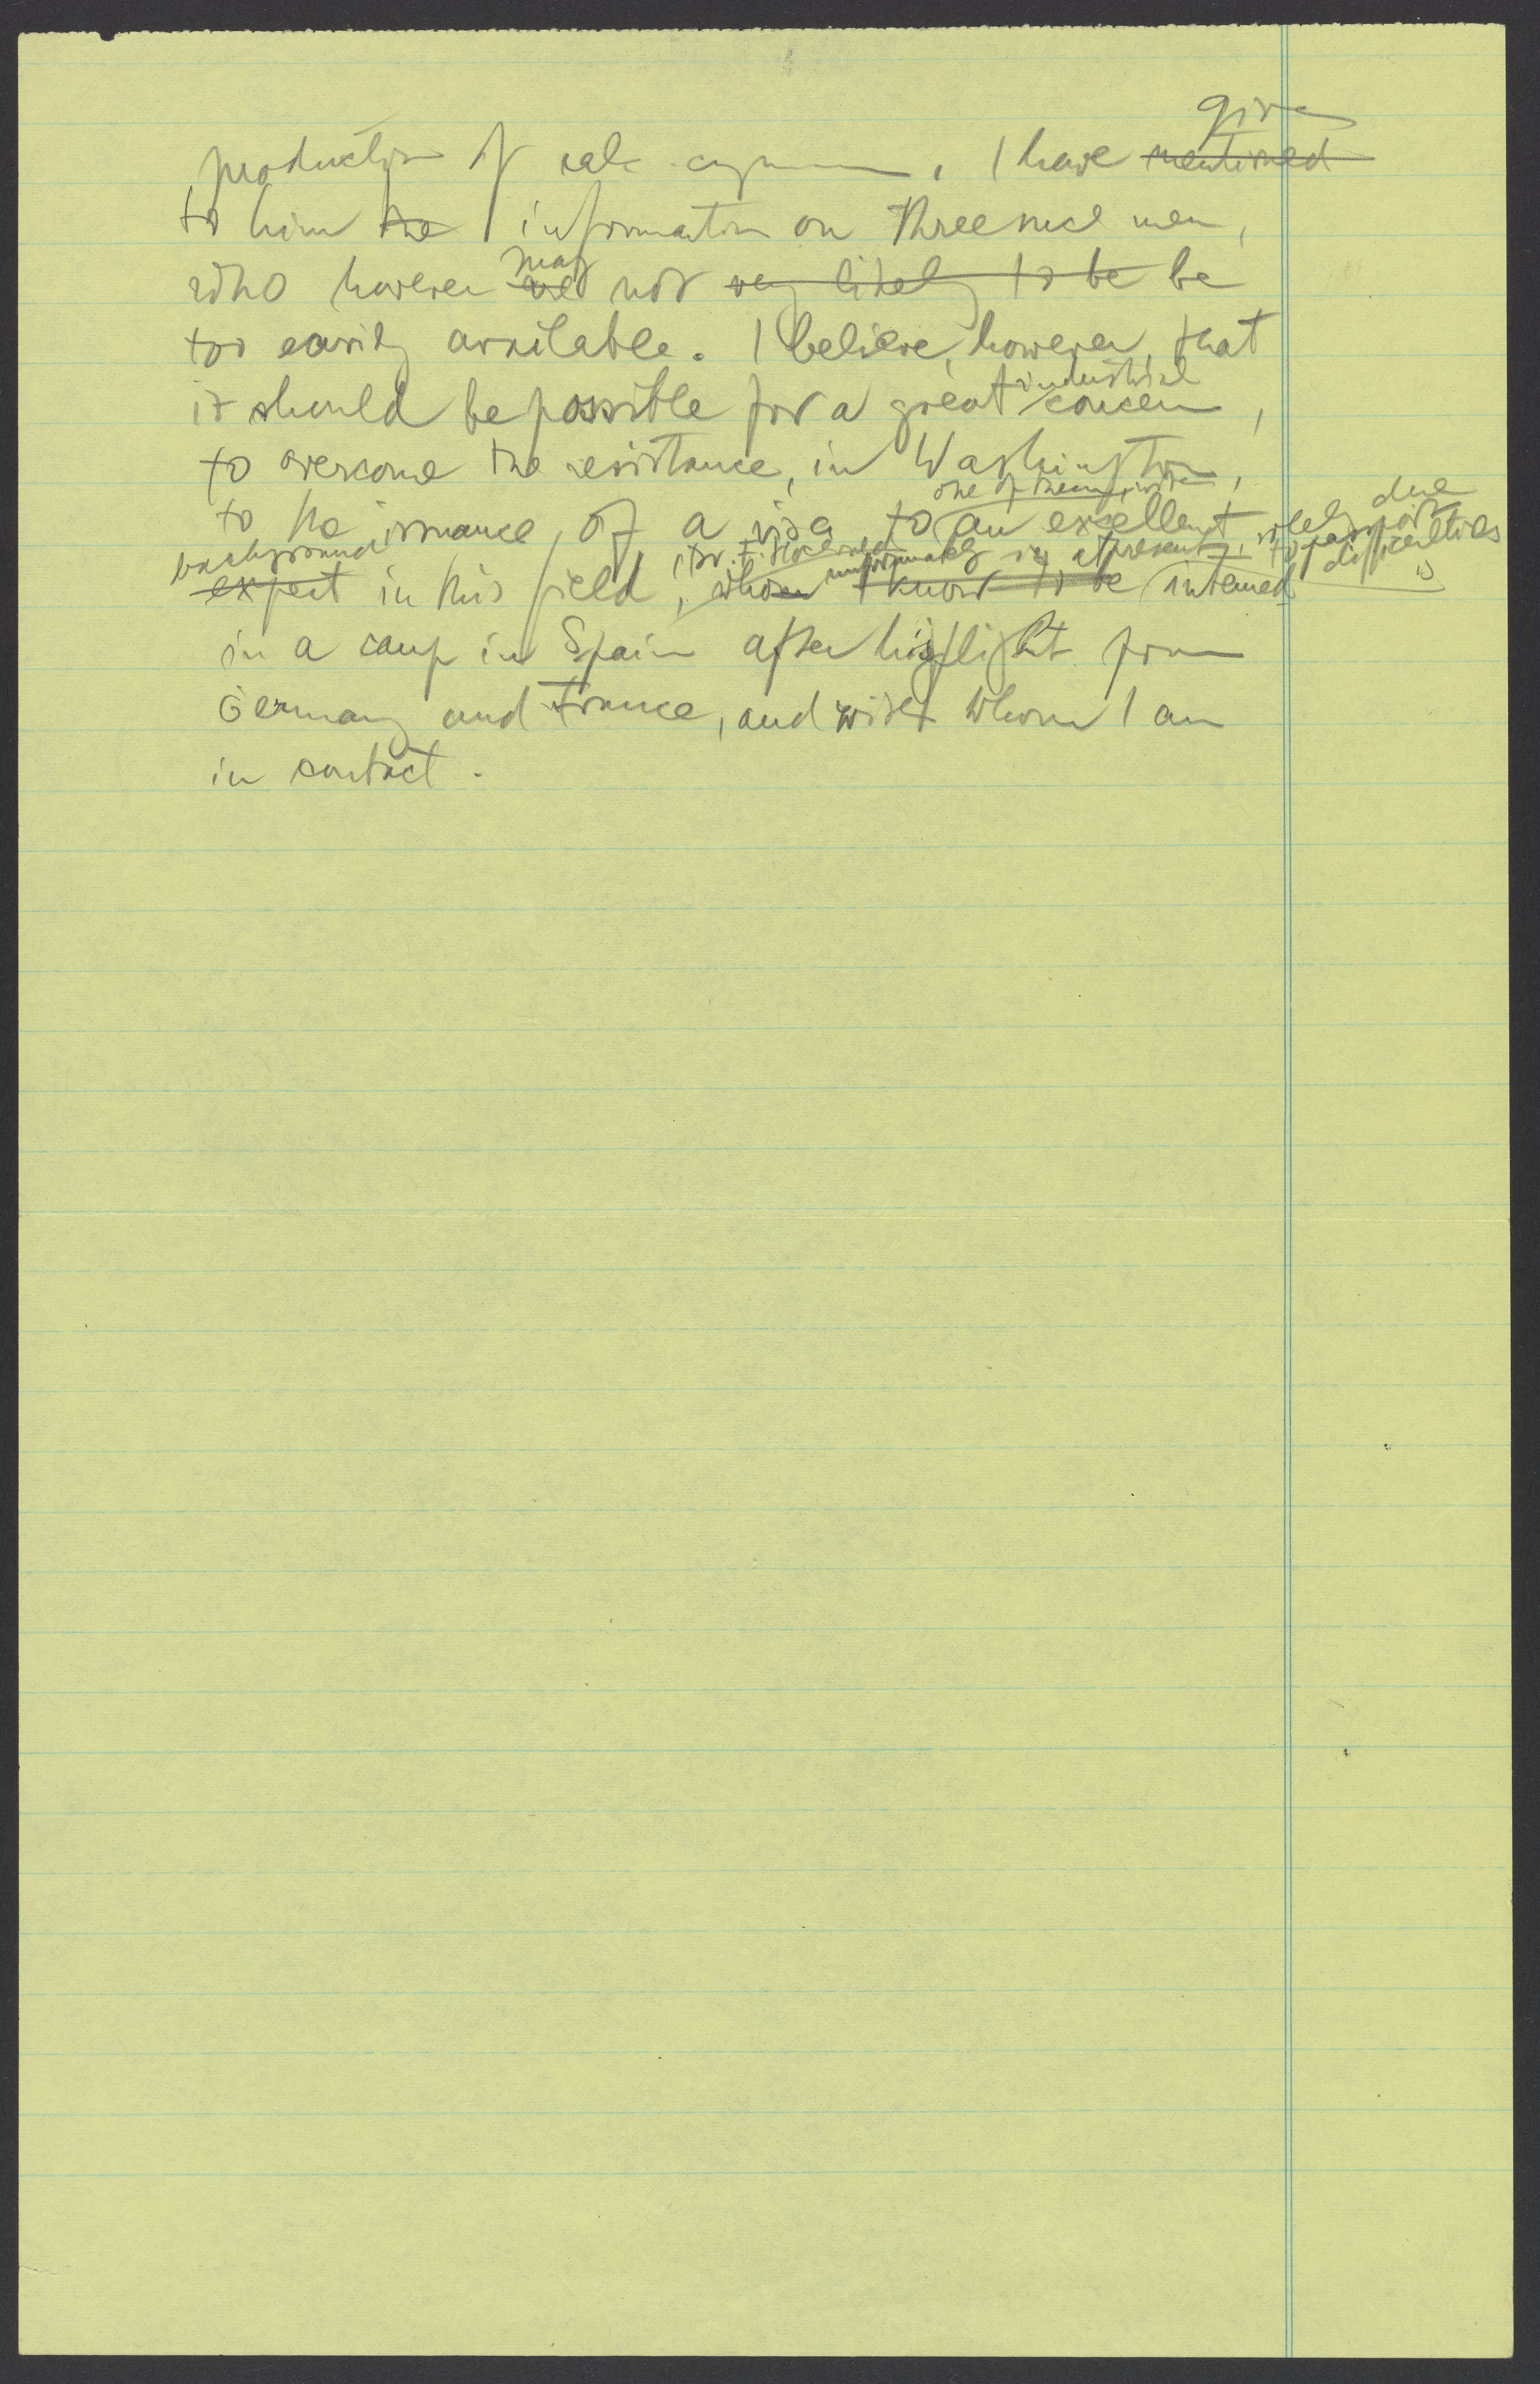 given
production of I have mentioned
to him the information on three such men,
may
who however are not very likely to be be
too easily available. I believe, however, that
industrial
it should be possible for a great concern,
to overcome the resistance, in Washington,
one of them, with
to the issuance, of a visa to an excellent solely due
background (Dr. F. unfortunately is, at present, to passport difficulties
expert in this field, whom I know to be interned is
in a camp in Spain after his flight from
Germany and France, and with whom I am
in contact.